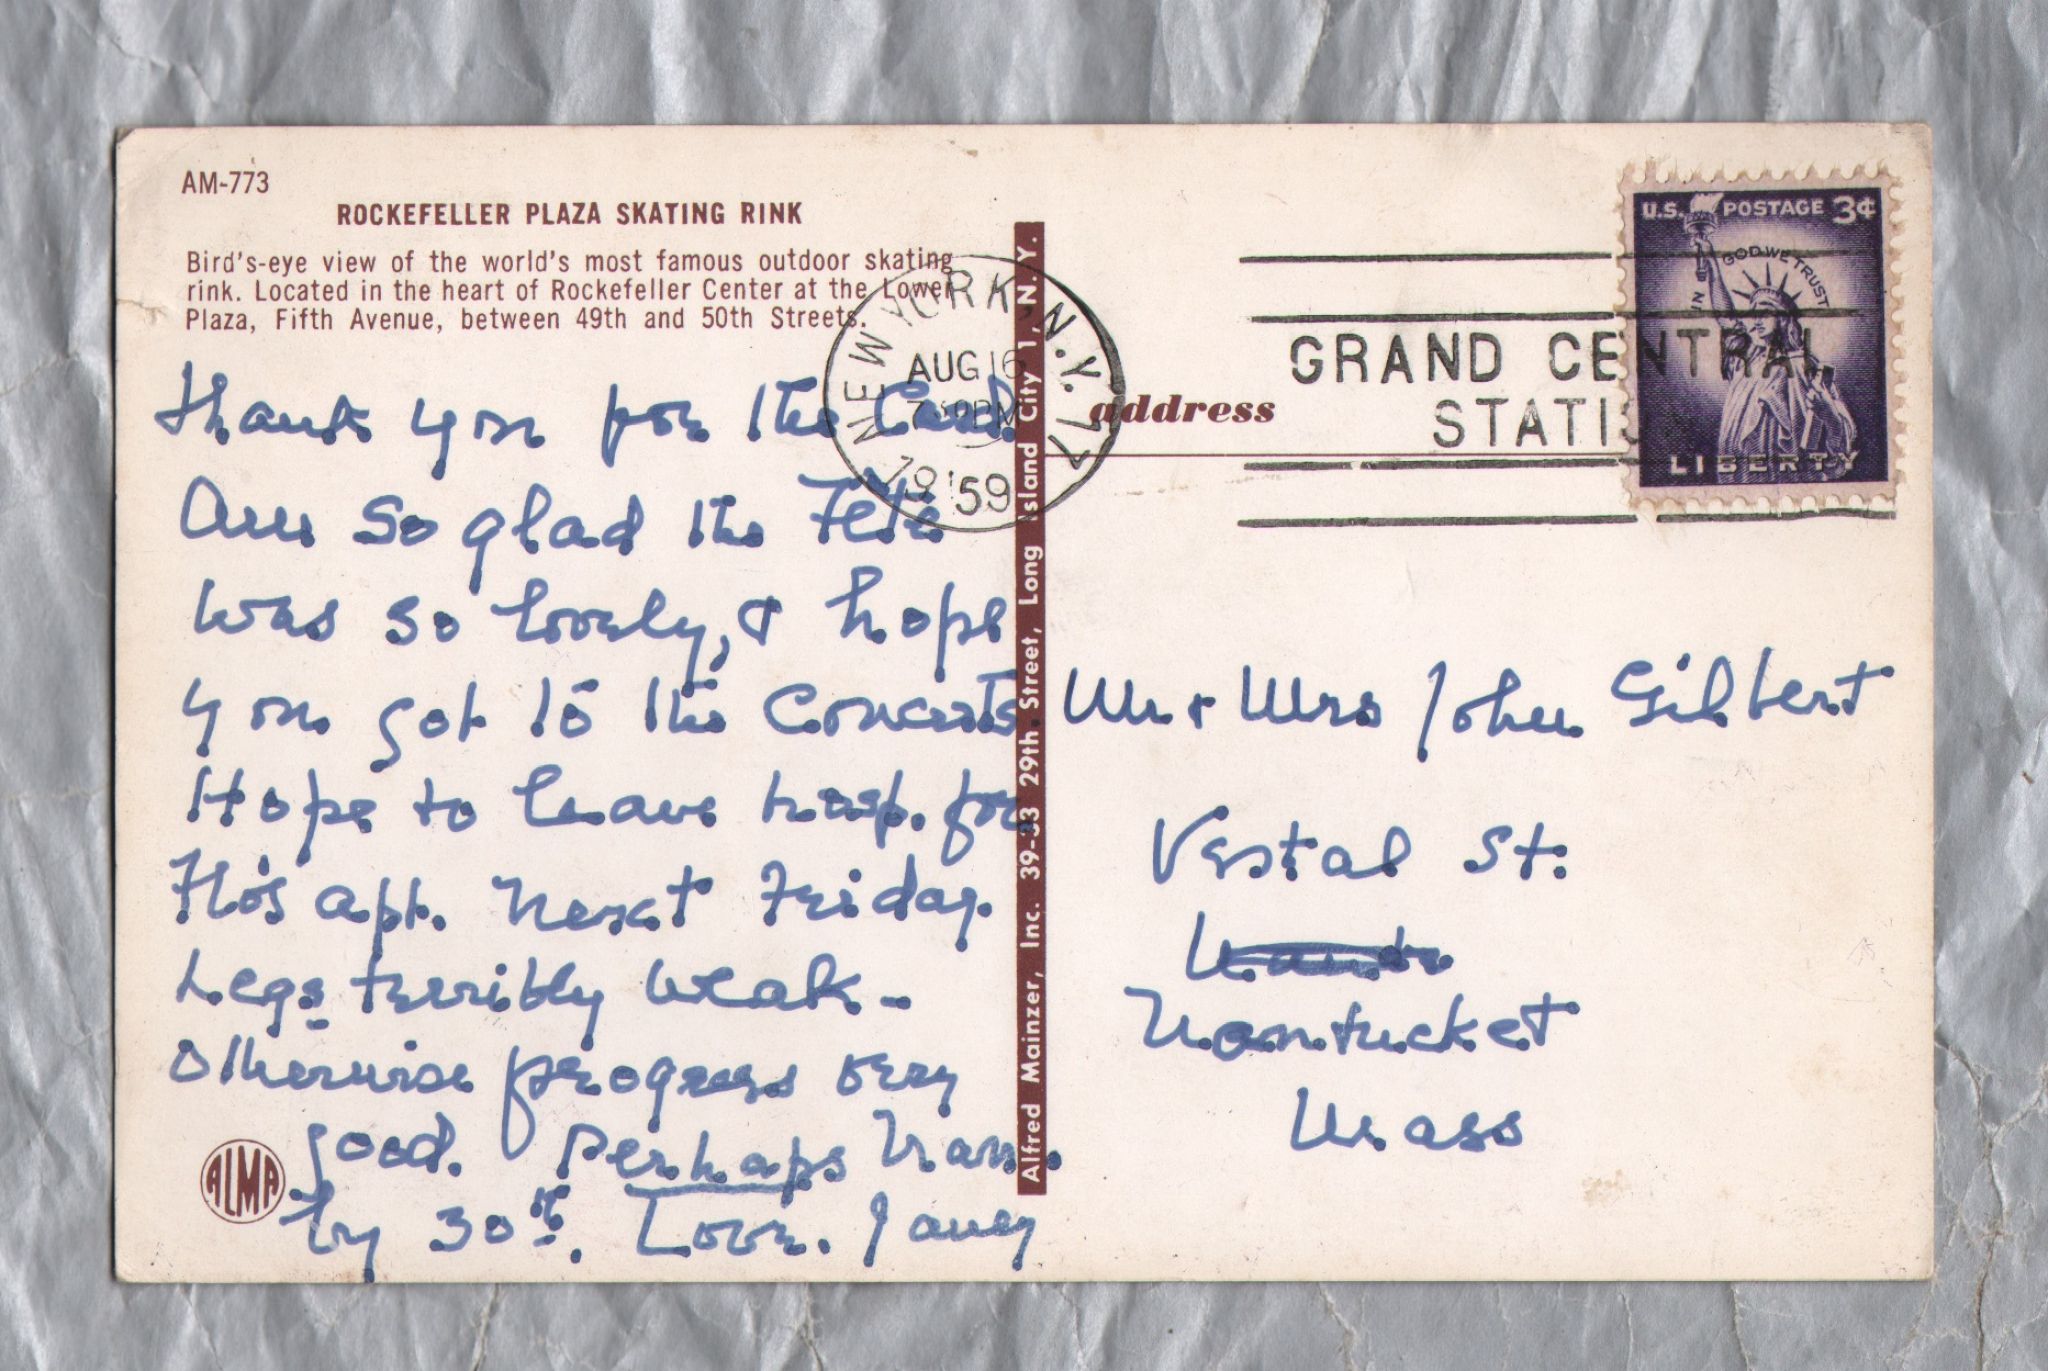 AM-773
ROCKEFELLER PLAZA SKATING RINK
Bird's-eye view of the world's most famous outdoor skating
rink. Located in the heart of Rockefeller Center at the Lower
Plaza, Fifth Avenue, between 49th and 50th Streets.
Thank you for the Card
Am so glad the Fete
was so lovely, & hope
you got to the Concerts
Hope to leave hosp. for
Flo's apt. next Friday.
Legs terribly weak -
Otherwise progress very
good. Perhaps Nan.
by 30th. Love. Janey
ALMA
Alfred Mainzer, Inc. 39-33 29th Street, Long Island City 1, N. Y.
NEW YORK, N.Y. 77
AUG 16
7 30 PM
1959
GRAND CENTRAL
STATI
U.S. POSTAGE 3¢
IN GOD WE TRUST
LIBERTY
address
Mr & Mrs John Gilbert
Vestal St.
Nantucket
Mass